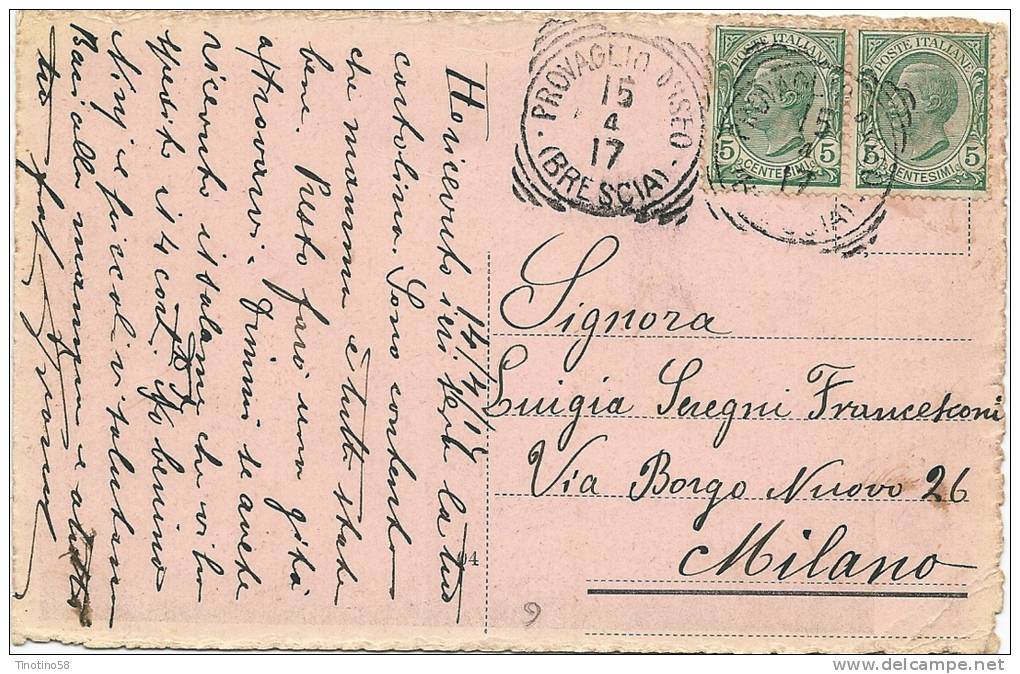 14/4/17
Ho ricevuto ieri sera la tua
cartolina. Sono contento
che mamma e tutti state
bene. Presto farò una gita
a trovarvi. Dimmi se avete
ricevuto il salame che vi ho
spedito il 4 corr. Sto benino
Ninj e piccoli vi salutano
Baci alla mamma e a tutti
tuo
PROVAGLIO D'ISEO
15
4
17
(BRESCIA)
POSTE ITALIANE
5 CENTESIMI 5
POSTE ITALIANE
5 CENTESIMI 5
Signora
Luigia Seregni Francesconi
Via Borgo Nuovo 26
Milano
04
9
Tnotino58
www.delcampe.net